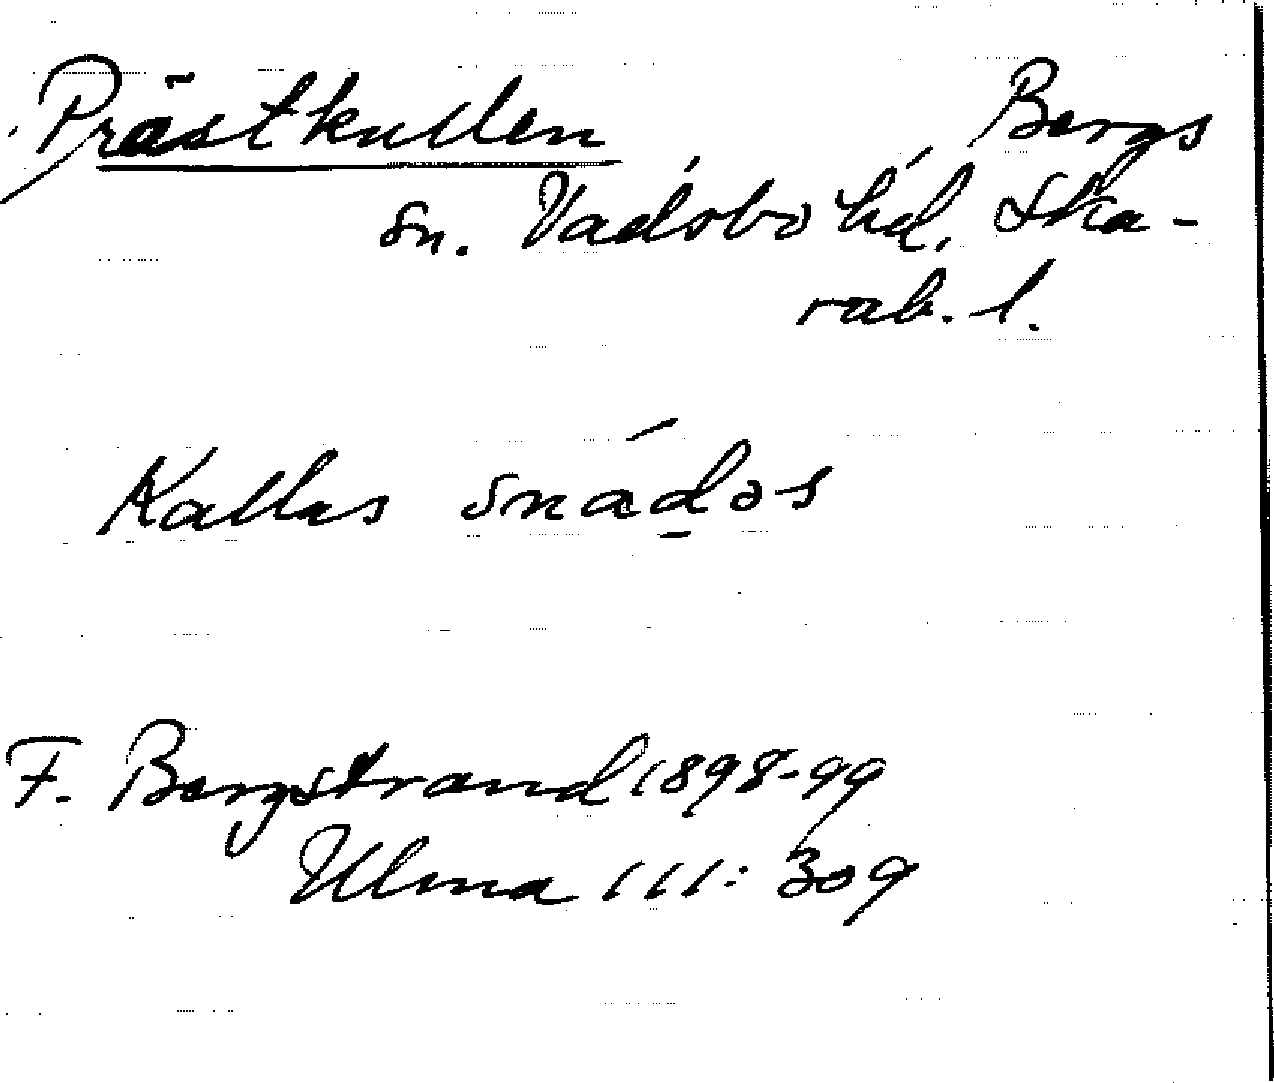 Prästkullen Bergs
sn. Vadsbo hd. Ska-
rab. l.
Kallas snádos
F. Bergstrand 1898-99
Ulma 111:309